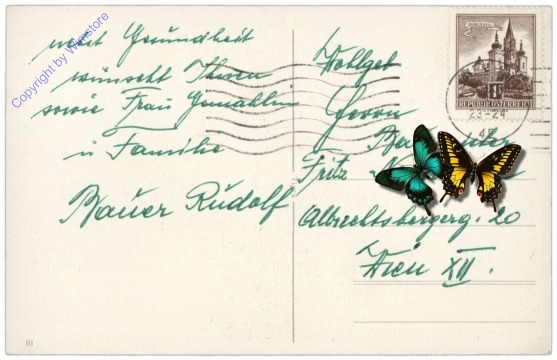 Copyright by Wimstore
viel Gesundheit
wünscht Ihnen
sowie Frau Gemahlin
u Familie
Bauer Rudolf
Wohlgeb
Herrn
Fritz
Albrechtsbergerg. 20
Wien XII.
REPUBLIK ÖSTERREICH
23-24
III